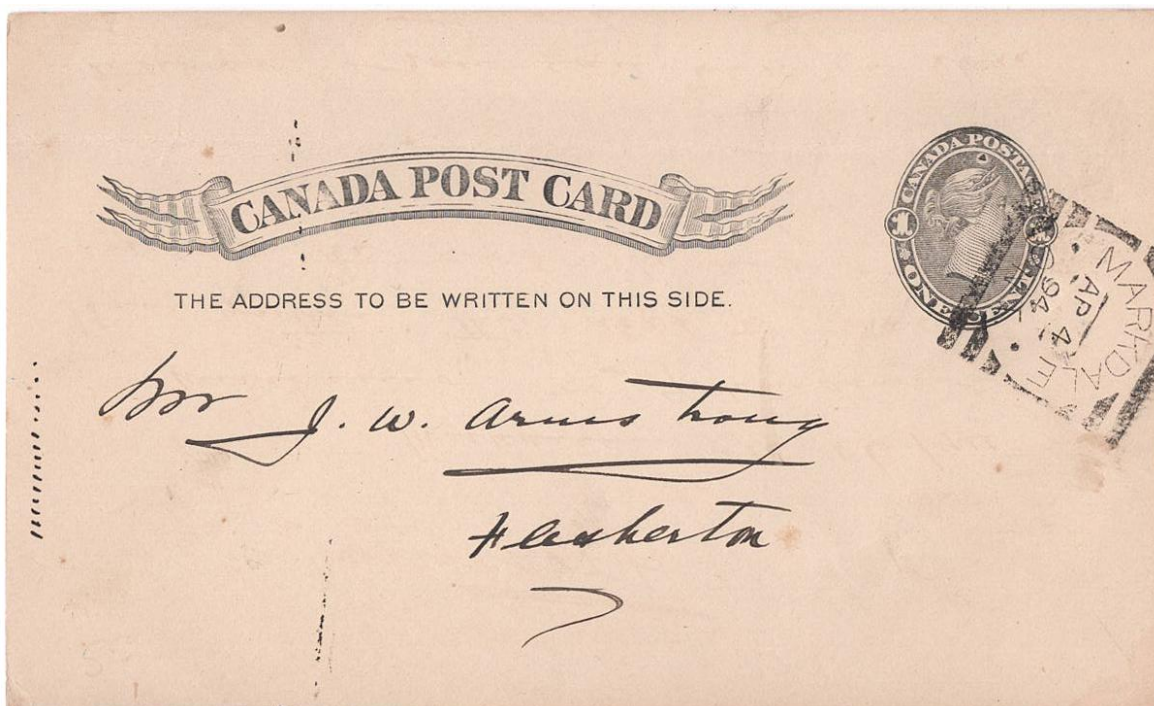 CANADA POST CARD
THE ADDRESS TO BE WRITTEN ON THIS SIDE.
CANADA POSTAGE
1 1
ONE CENT
MARKDALE
AP 4
94
Mr J. W. Armstrong
Flesherton